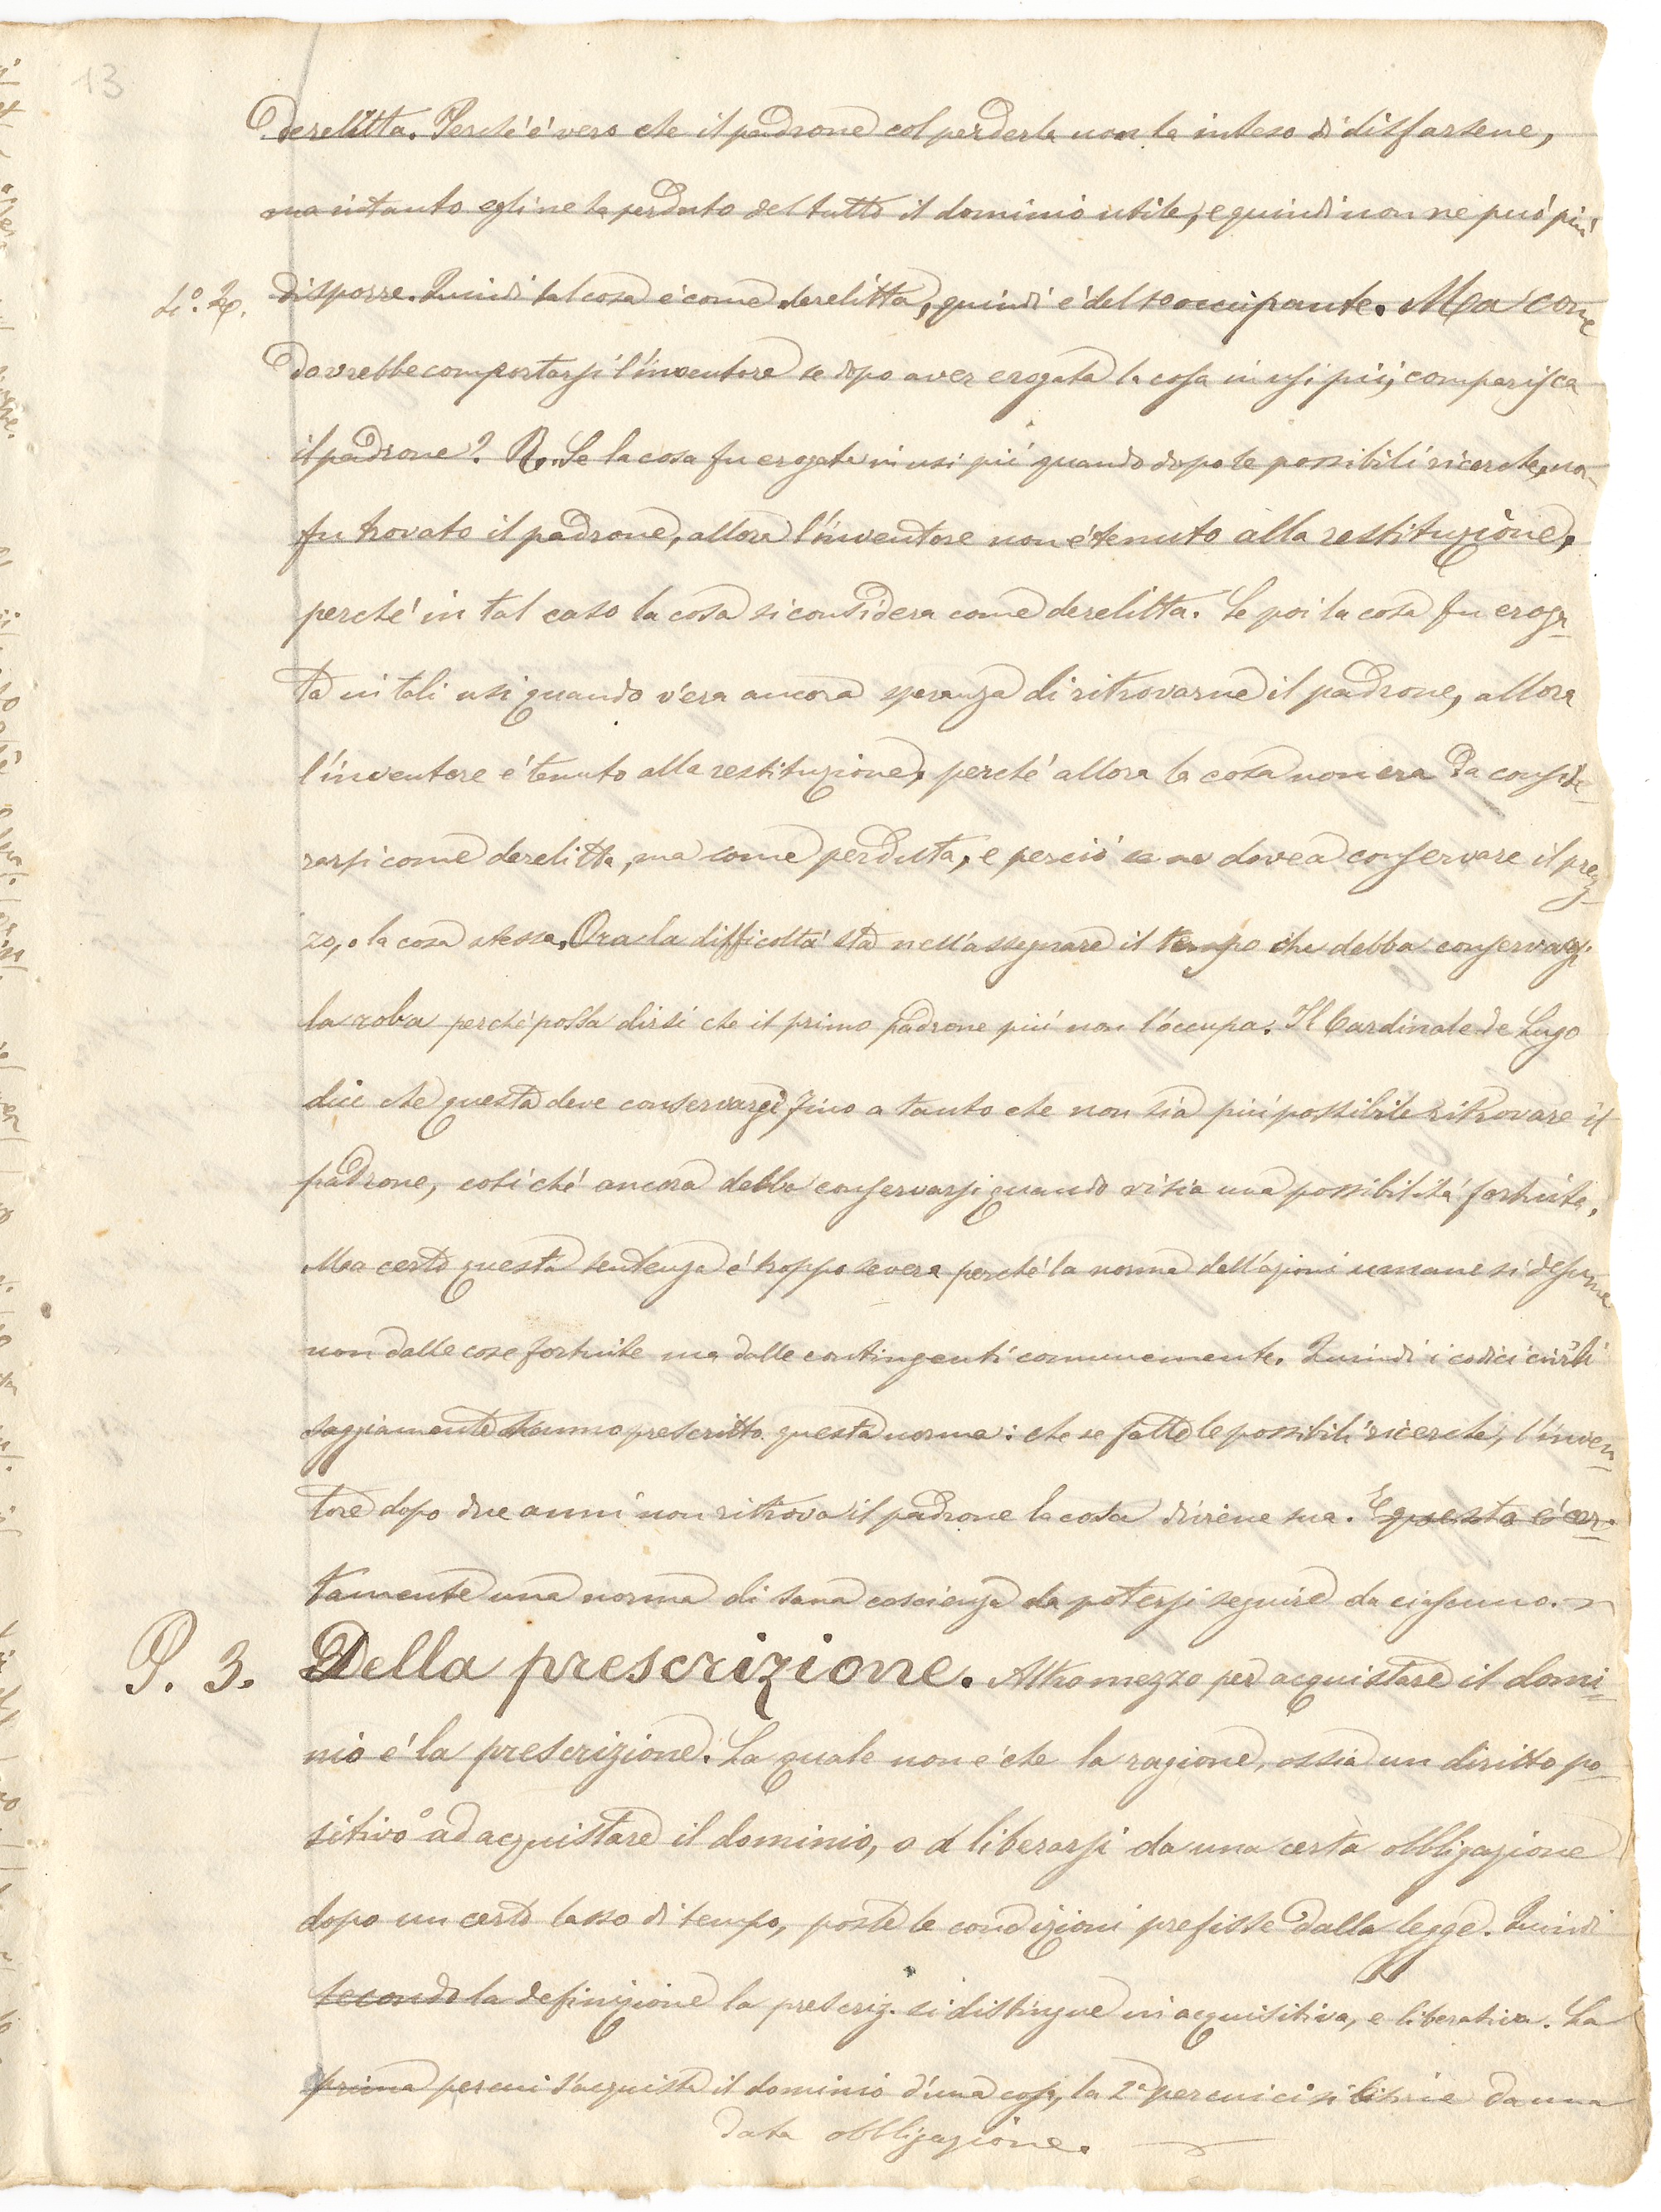 13
derelitta. Perché é vero che il padrone col perderla non ha inteso di disfarsene,
ma intanto egli ne ha perduto del tutto il dominio utile, e quindi non ne puó piú
disporre. Quindi tal cosa é come derelitta, quindi é del 1o occupante. Ma come
dovrebbe comportarsi l'inventore se dopo aver erogata la cosa in usi pii, comparisca
il padrone? R. Se la cosa fu erogata in usi pii quando dopo le possibili ricerche, non
fu trovato il padrone, allora l'inventore non é tenuto alla restituzione,
perché in tal caso la cosa si considera come derelitta. Se poi la cosa fu eroga-
ta in tali usi quando v'era ancora speranza di ritrovarne il padrone, allora
l'inventore é tenuto alla restituzione, perché allora la cosa non era da conside-
rarsi come derelitta, ma come perduta, e perció se ne dovea conservare il prez-
zo, o la cosa stessa. Ora la difficoltá sta nell'assegnare il tempo che debba conservarsi
la roba perché possa dirsi che il primo padrone piú non l'occupa. Il Cardinale de Lugo
dice che questa deve conservarsi fino a tanto che non sia piú possibile ritrovare il
padrone, cosí ché ancora debba conservarsi quando vi sia una possibilitá fortuita.
Ma certo questa sentenza é troppo severa perché la norma dell'azioni umane si desume
non dalle cose fortuite ma dalle contingenti comunemente. Quindi i codici civili
saggiamente hanno prescritto questa norma: che se fatte le possibili ricerche, l'inven-
tore dopo due anni non ritrova il padrone la cosa diviene sua. E questa é cer-
tamente una norma di sana coscienza da potersi seguire da ciascuno.
P. 3. Della prescrizione. Altro mezzo per acquistare il domi-
nio é la prescrizione. La quale non é che la ragione, ossia un diritto po-
sitivo ad acquistare il dominio, o a liberarsi da una certa obbligazione
dopo un certo lasso di tempo, poste le condizioni prefisse dalla legge. Quindi
secondo la definizione la prescriz. si distingue in acquisitiva, e liberativa. La
prima per cui s'acquista il dominio d'una cosa, la 2a per cui ci si libera da una
data obbligazione.